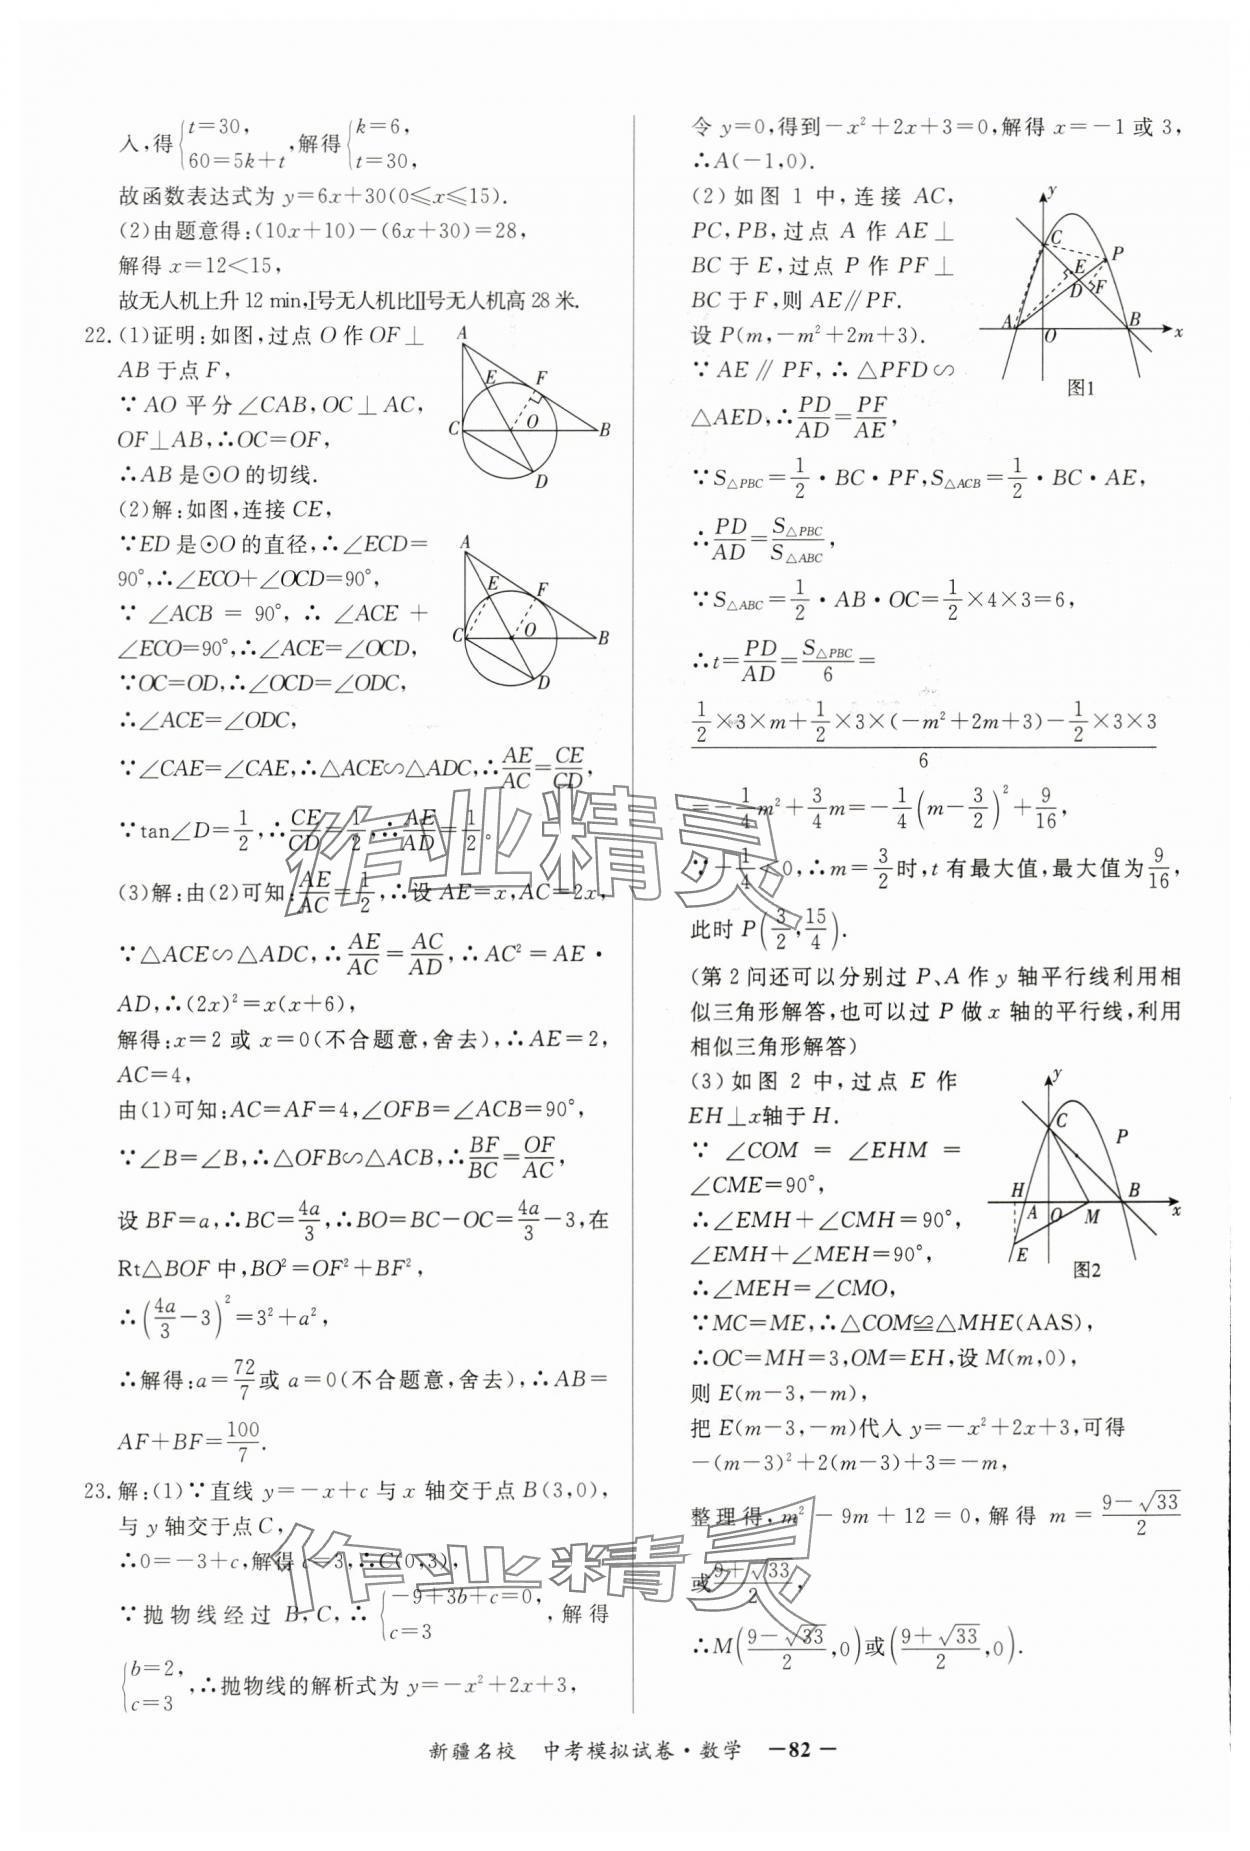 入,得{t=30, 60=5k+t ,解得{k=6, t=30,
故函数表达式为 y=6x+30(0≤x≤15).
(2)由题意得:(10x+10)-(6x+30)=28,
解得 x=12<15,
故无人机上升 12 min,Ⅰ号无人机比Ⅱ号无人机高 28 米.
22.(1)证明:如图,过点 O 作 OF⊥
AB 于点 F,
∵AO 平分∠CAB,OC⊥AC,
OF⊥AB,∴OC=OF,
∴AB 是⊙O 的切线.
A
E
F
C
O
B
D
(2)解:如图,连接 CE,
∵ED 是⊙O 的直径,∴∠ECD=
90°,∴∠ECO+∠OCD=90°,
∵∠ACB=90°,∴∠ACE+
∠ECO=90°,∴∠ACE=∠OCD,
∵OC=OD,∴∠OCD=∠ODC,
∴∠ACE=∠ODC,
A
E
F
C
O
B
D
∵∠CAE=∠CAE,∴△ACE∽△ADC,∴AE/AC=CE/CD,
∵tan∠D=1/2,∴CE/CD=1/2,∴AE/AD=1/2。
(3)解:由(2)可知:AE/AC=1/2,∴设 AE=x,AC=2x,
∵△ACE∽△ADC,∴AE/AC=AC/AD,∴AC²=AE·
AD,∴(2x)²=x(x+6),
解得:x=2 或 x=0(不合题意,舍去),∴AE=2,
AC=4,
由(1)可知:AC=AF=4,∠OFB=∠ACB=90°,
∵∠B=∠B,∴△OFB∽△ACB,∴BF/BC=OF/AC,
设 BF=a,∴BC=4a/3,∴BO=BC-OC=4a/3-3,在
Rt△BOF 中,BO²=OF²+BF²,
∴(4a/3-3)²=3²+a²,
∴解得:a=72/7或 a=0(不合题意,舍去),∴AB=
AF+BF=100/7.
23.解:(1)∵直线 y=-x+c 与 x 轴交于点 B(3,0),
与 y 轴交于点 C,
∴0=-3+c,解得 c=3,∴C(0,3),
∵抛物线经过 B,C,∴{-9+3b+c=0, c=3 ,解得
{b=2, c=3 ,∴抛物线的解析式为 y=-x²+2x+3,
令 y=0,得到-x²+2x+3=0,解得 x=-1 或 3,
∴A(-1,0).
(2)如图 1 中,连接 AC,
PC,PB,过点 A 作 AE⊥
BC 于 E,过点 P 作 PF⊥
BC 于 F,则 AE∥PF.
设 P(m,-m²+2m+3).
∵AE∥PF,∴△PFD∽
△AED,∴PD/AD=PF/AE,
y
C
P
E
D
F
A
O
B
x
图1
∵S△PBC=1/2·BC·PF,S△ACB=1/2·BC·AE,
∴PD/AD=S△PBC/S△ABC,
∵S△ABC=1/2·AB·OC=1/2×4×3=6,
∴t=PD/AD=S△PBC/6=
(1/2×3×m+1/2×3×(-m²+2m+3)-1/2×3×3)/6
=-1/4m²+3/4m=-1/4(m-3/2)²+9/16,
∵-1/4<0,∴m=3/2时,t 有最大值,最大值为9/16,
此时 P(3/2,15/4).
(第 2 问还可以分别过 P、A 作 y 轴平行线利用相
似三角形解答,也可以过 P 做 x 轴的平行线,利用
相似三角形解答)
(3)如图 2 中,过点 E 作
EH⊥x轴于 H.
∵∠COM=∠EHM=
∠CME=90°,
∴∠EMH+∠CMH=90°,
∠EMH+∠MEH=90°,
∴∠MEH=∠CMO,
y
C
P
H
A
O
M
B
x
E
图2
∵MC=ME,∴△COM≌△MHE(AAS),
∴OC=MH=3,OM=EH,设 M(m,0),
则 E(m-3,-m),
把 E(m-3,-m)代入 y=-x²+2x+3,可得
-(m-3)²+2(m-3)+3=-m,
整理得,m²-9m+12=0,解得 m=(9-√33)/2
或(9+√33)/2,
∴M((9-√33)/2,0)或((9+√33)/2,0).
作业精灵
作业精灵
新疆名校 中考模拟试卷·数学 —82—